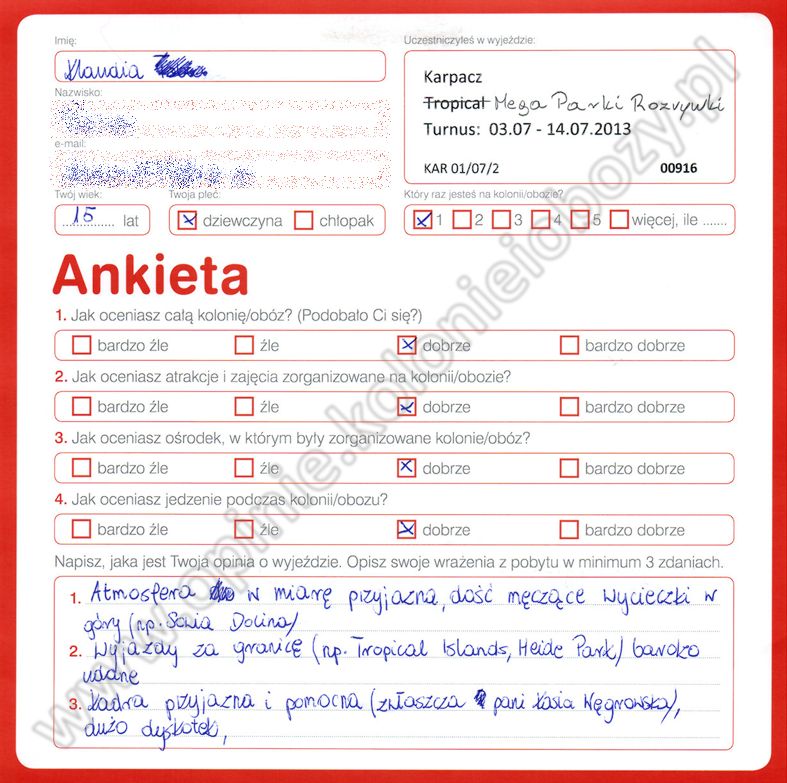 Imię:
Klaudia
Uczestniczyłeś w wyjeździe:
Karpacz
Tropical Mega Parki Rozrywki
Turnus: 03.07 - 14.07.2013
KAR 01/07/2 00916
Nazwisko:
e-mail:
Twój wiek:
15 lat
Twoja płeć:
dziewczyna chłopak
Który raz jesteś na kolonii/obozie?
1 2 3 4 5 więcej, ile .......
Ankieta
1. Jak oceniasz całą kolonię/obóz? (Podobało Ci się?)
bardzo źle źle dobrze bardzo dobrze
2. Jak oceniasz atrakcje i zajęcia zorganizowane na kolonii/obozie?
bardzo źle źle dobrze bardzo dobrze
3. Jak oceniasz ośrodek, w którym były zorganizowane kolonie/obóz?
bardzo źle źle dobrze bardzo dobrze
4. Jak oceniasz jedzenie podczas kolonii/obozu?
bardzo źle źle dobrze bardzo dobrze
Napisz, jaka jest Twoja opinia o wyjeździe. Opisz swoje wrażenia z pobytu w minimum 3 zdaniach.
1. Atmosfera w miarę przyjazna, dość męczące wycieczki w
góry (np. Sowia Dolina)
2. Wyjazdy za granicę (np. Tropical Islands, Heide Park) bardzo
udane
3. Kadra przyjazna i pomocna (zwłaszcza pani Kasia Węgrowska),
dużo dyskotek,
www.opinie.kolonieiobozy.pl